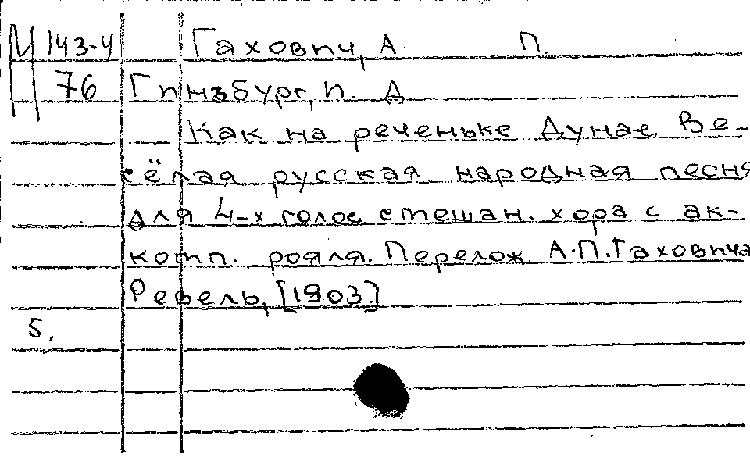 М 143-4 Гахович, А. П.
76 Гинзбург, П. Д
Как на реченьке Дунае Ве-
сёлая русская народная песня
для 4-х голос смешан. хора с ак-
комп. рояля. Перелож А.П.Гаховича
Ревель, [1903]
5.